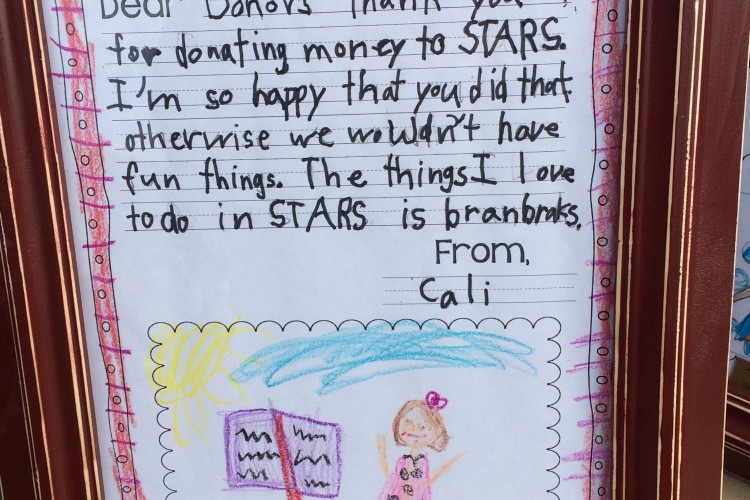 Dear Donors Thank you,
for donating money to STARS.
I'm so happy that you did that
otherwise we wouldn't have
fun things. The things I love
to do in STARS is branbraks.
From,
Cali